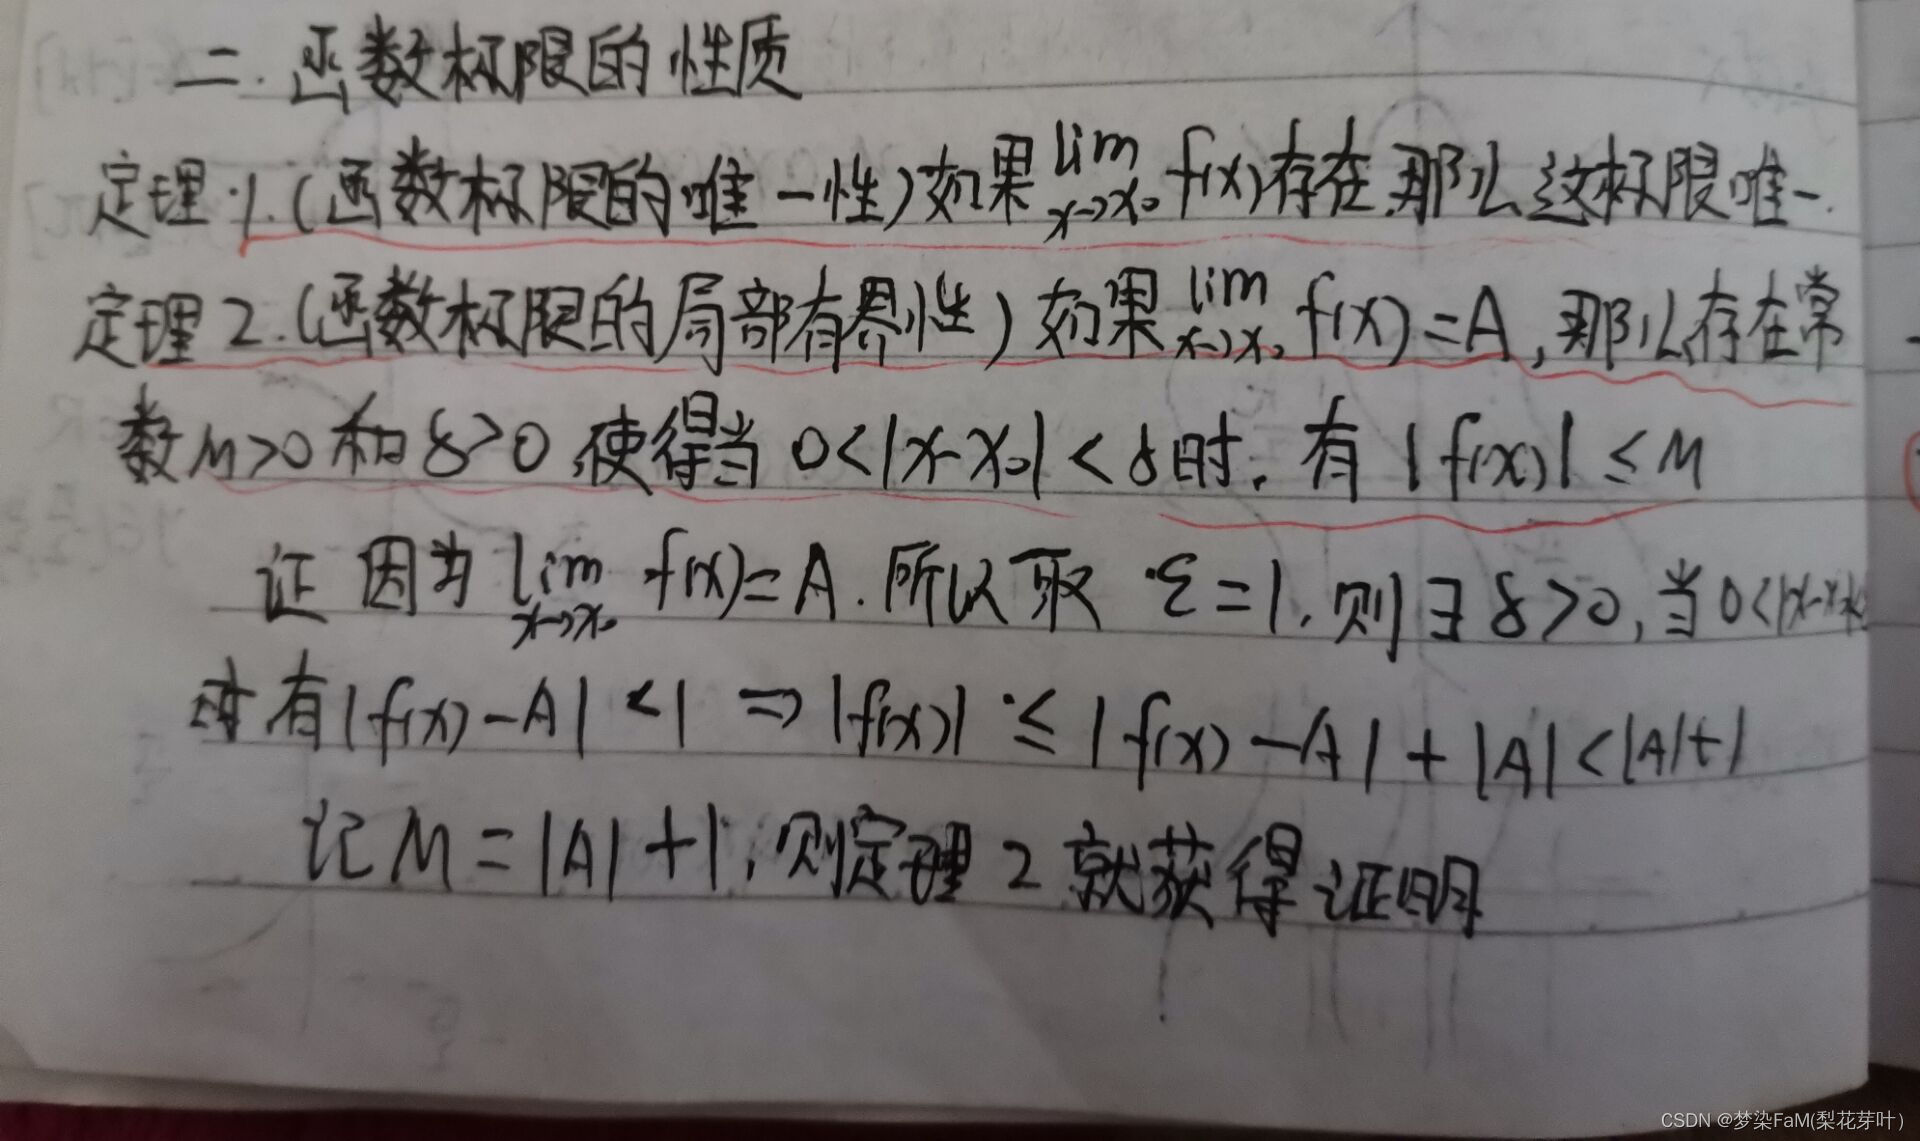 二.函数极限的性质
定理1.(函数极限的唯一性)如果 lim x→x₀ f(x)存在,那么这极限唯一.
定理2.(函数极限的局部有界性)如果 lim x→x₀ f(x)=A,那么存在常
数M>0和δ>0,使得当0<|x-x₀|<δ时.有|f(x)|≤M
证 因为 lim x→x₀ f(x)=A.所以取ε=1.则∃δ>0,当0<|x-x₀|<
时有|f(x)-A|<1⇒|f(x)|≤|f(x)-A|+|A|<|A|+1
记M=|A|+1,则定理2就获得证明
CSDN @梦染FaM(梨花芽叶)